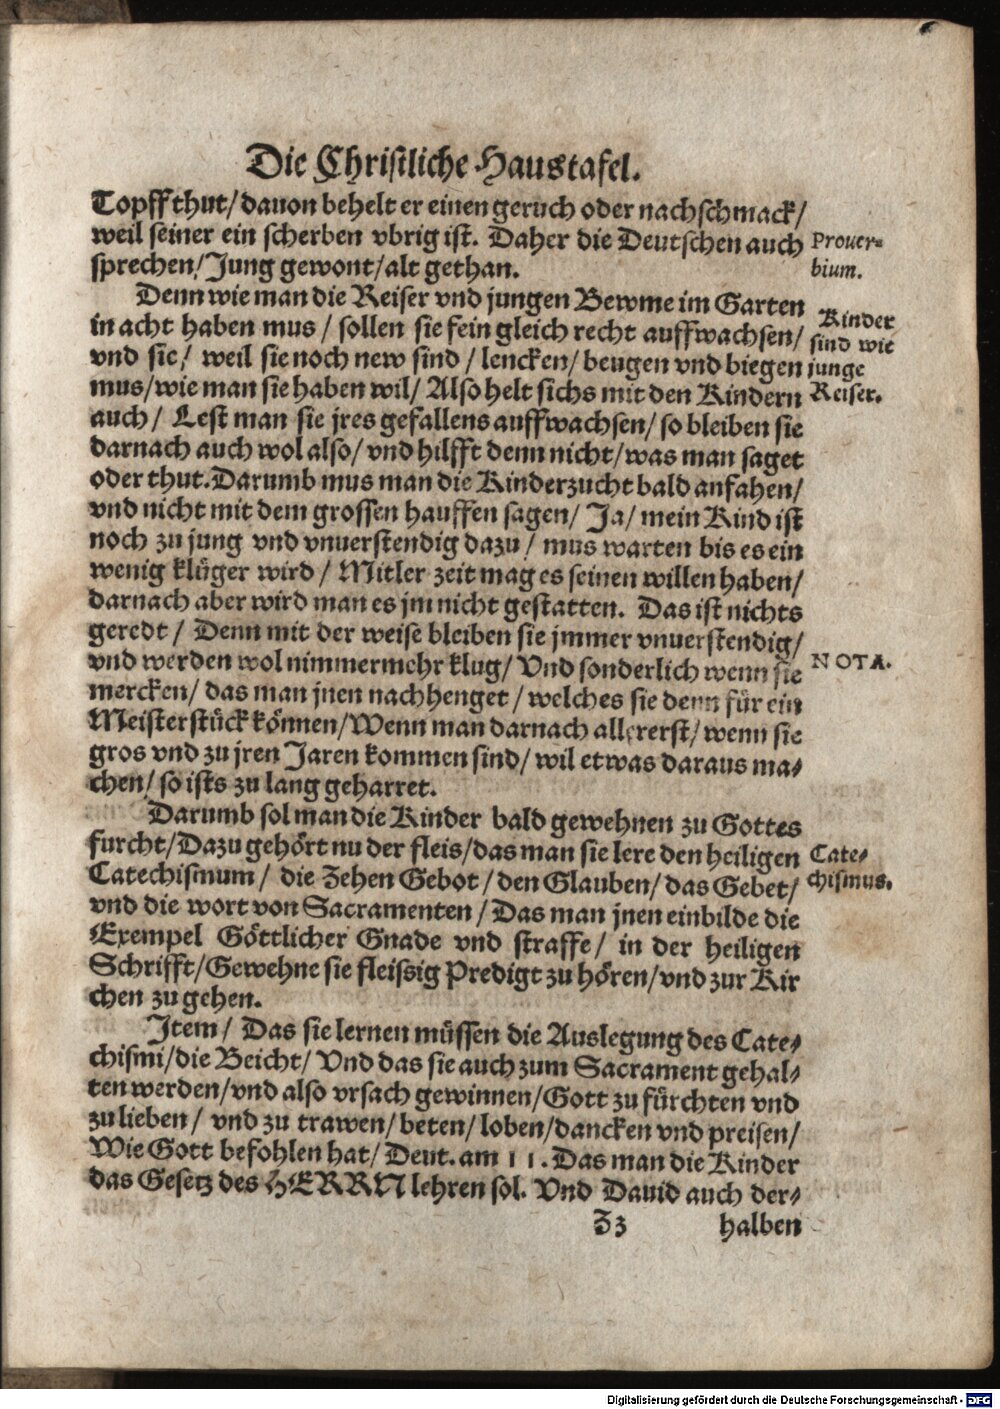 Die Christliche Haustafel.
Topff thut/ dauon behelt er einen geruch oder nachschmack/
weil seiner ein scherben vbrig ist. Daher die Deutschen auch
sprechen/ Jung gewont/ alt gethan.
Prouer-
bium.
Denn wie man die Reiser vnd jungen Bewme im Garten
in acht haben mus/ sollen sie fein gleich recht auffwachsen/
vnd sie/ weil sie noch new sind/ lencken/ beugen vnd biegen
mus/ wie man sie haben wil/ Also helt sichs mit den Kindern
auch/ Lest man sie jres gefallens auffwachsen/ so bleiben sie
darnach auch wol also/ vnd hilfft denn nicht/ was man saget
oder thut. Darumb mus man die Kinderzucht bald anfahen/
vnd nicht mit dem grossen hauffen sagen/ Ja/ mein Kind ist
noch zu jung vnd vnuerstendig dazu/ mus warten bis es ein
wenig klüger wird/ Mitler zeit mag es seinen willen haben/
darnach aber wird man es jm nicht gestatten. Das ist nichts
geredt/ Denn mit der weise bleiben sie jmmer vnuerstendig/
vnd werden wol nimmermehr klug/ Vnd sonderlich wenn sie
mercken/ das man jnen nachhenget/ welches sie denn für ein
Meisterstück können/ Wenn man darnach allererst/ wenn sie
gros vnd zu jren Jaren kommen sind/ wil etwas daraus ma-
chen/ so ists zu lang geharret.
Kinder
sind wie
junge
Reiser.
NOTA.
Darumb sol man die Kinder bald gewehnen zu Gottes
furcht/ Dazu gehört nu der fleis/ das man sie lere den heiligen
Catechismum/ die Zehen Gebot/ den Glauben/ das Gebet/
vnd die wort von Sacramenten/ Das man jnen einbilde die
Exempel Göttlicher Gnade vnd straffe/ in der heiligen
Schrifft/ Gewehne sie fleissig Predigt zu hören/ vnd zur Kir
chen zu gehen.
Cate-
chismus.
Jtem/ Das sie lernen müssen die Auslegung des Cate-
chismi/ die Beicht/ Vnd das sie auch zum Sacrament gehal-
ten werden/ vnd also vrsach gewinnen/ Gott zu fürchten vnd
zu lieben/ vnd zu trawen/ beten/ loben/ dancken vnd preisen/
Wie Gott befohlen hat/ Deut. am 11. Das man die Kinder
das Gesetz des HERRN lehren sol. Vnd Dauid auch der-
Z3 halben
Digitalisierung gefördert durch die Deutsche Forschungsgemeinschaft - DFG